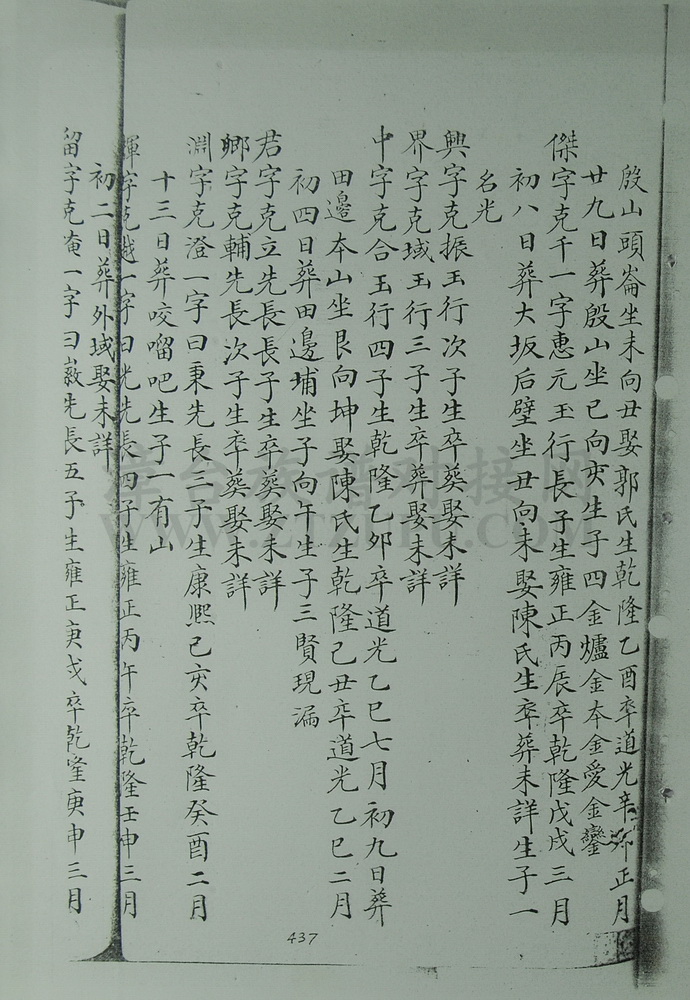 殷山頭崙坐未向丑娶郭氏生乾隆乙酉卒道光辛卯正月
廿九日葬殷山坐巳向亥生子四金爐金本金愛金鑾
傑字克千一字惠元玉行長子生雍正丙辰卒乾隆戊戌三月
初八日葬大坂后壁坐丑向未娶陳氏生卒葬未詳生子一
名光
興字克振玉行次子生卒葬娶未詳
界字克域玉行三子生卒葬娶未詳
中字克合玉行四子生乾隆乙卯卒道光乙巳七月初九日葬
田邊本山坐艮向坤娶陳氏生乾隆己丑卒道光乙巳二月
初四日葬田邊埔坐子向午生子三賢現漏
君字克立先長長子生卒葬娶未詳
鄉字克輔先長次子生卒葬娶未詳
淵字克澄一字曰秉先長三子生康熙己亥卒乾隆癸酉二月
十三日葬咬嚠吧生子一有山
輝字克越一字曰光先長四子生雍正丙午卒乾隆壬申三月
初二日葬外域娶未詳
留字克淹一字曰嚴先長五子生雍正庚戌卒乾隆庚申三月
437